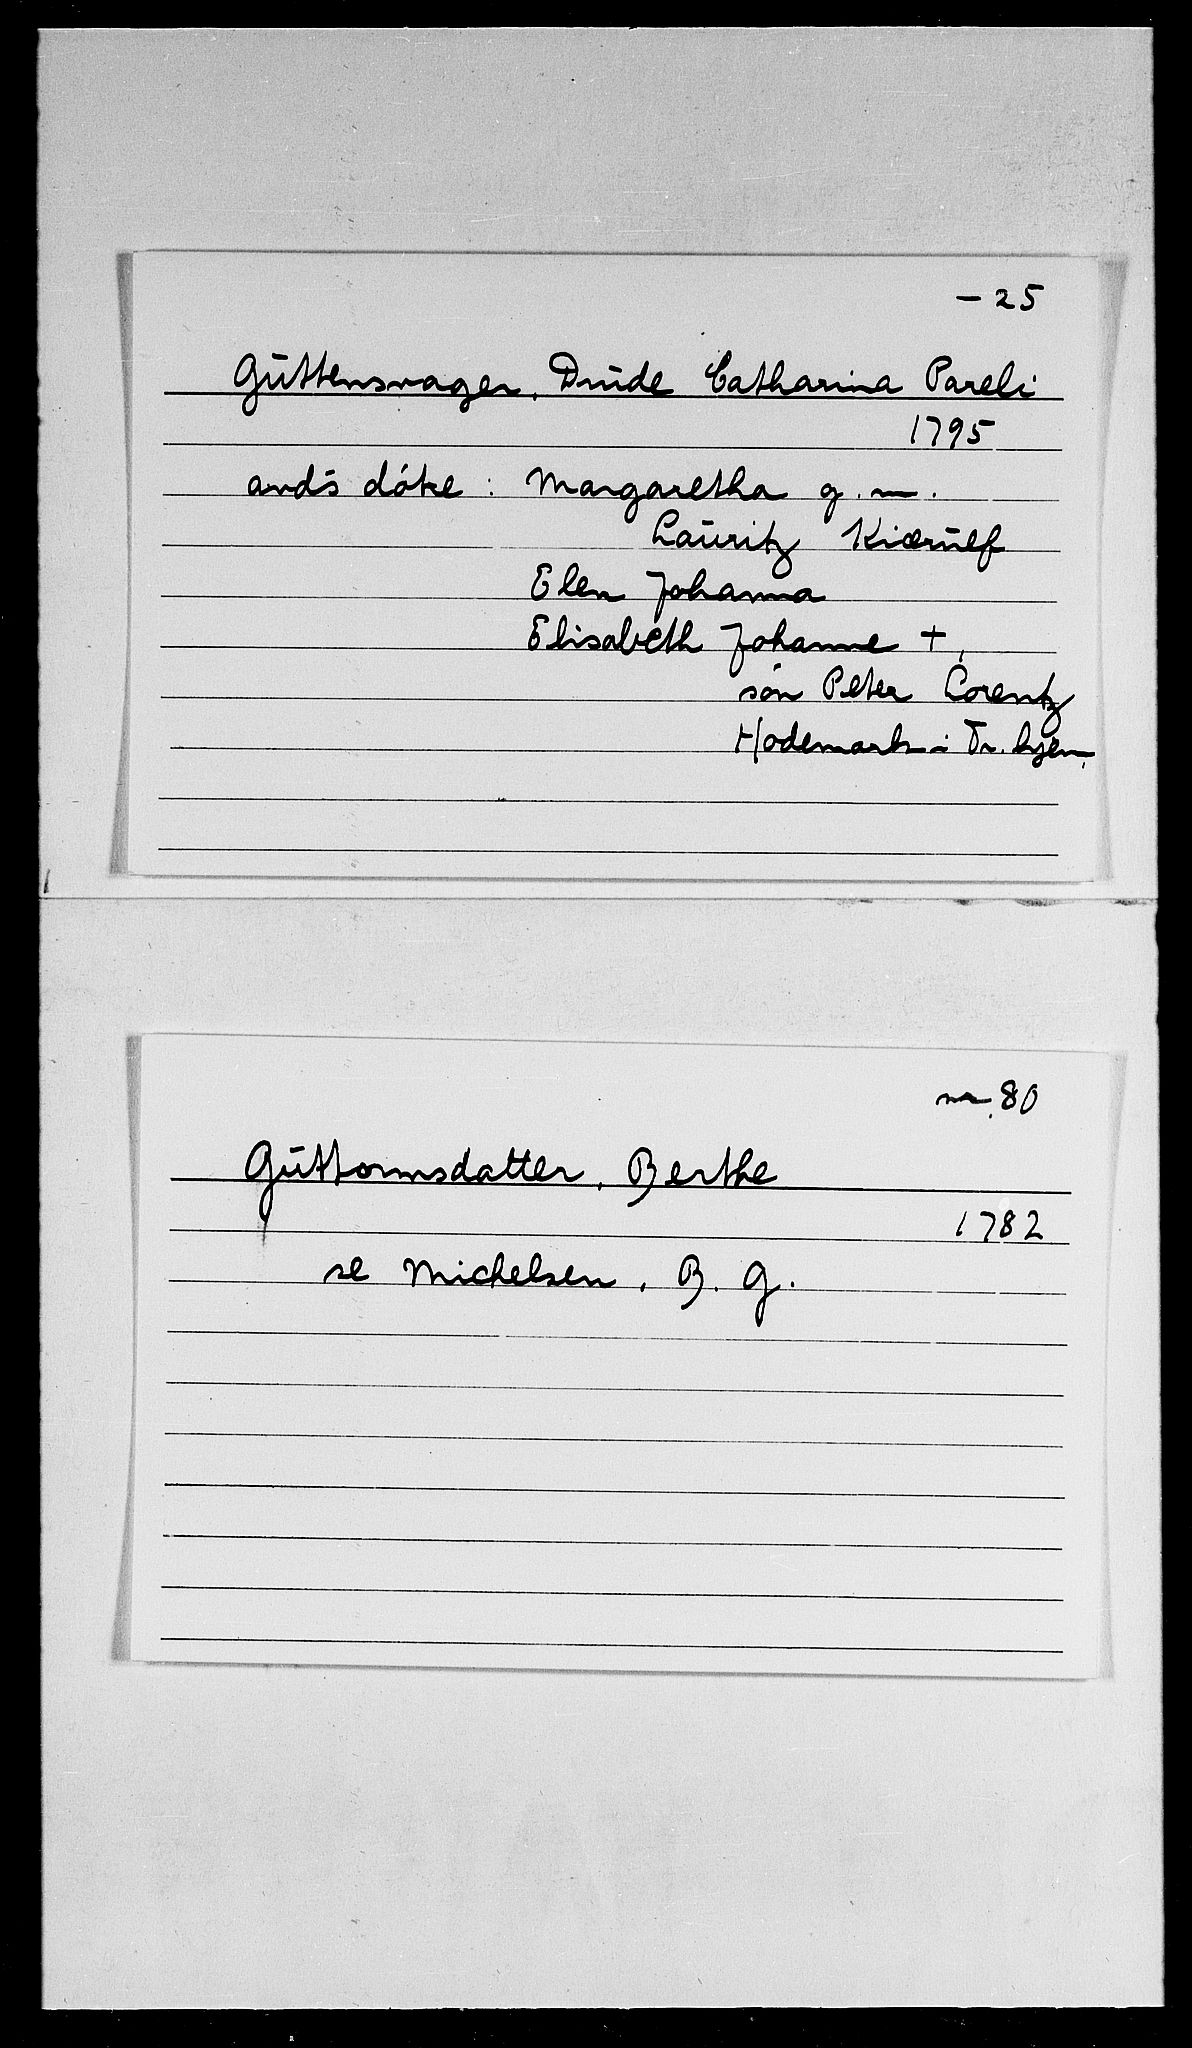 - 25
Guttensvager, Drude Catharina Pareli
1795
and's dötre : Margaretha g. m.
Lauritz Kiærulf
Elen Johanna
Elisabeth Johanne +,
sön Peter Lorentz
Hodemark i Tr.hjem.
nr. 80
Guttormsdatter, Berthe
1782
se Michelsen, B. G.